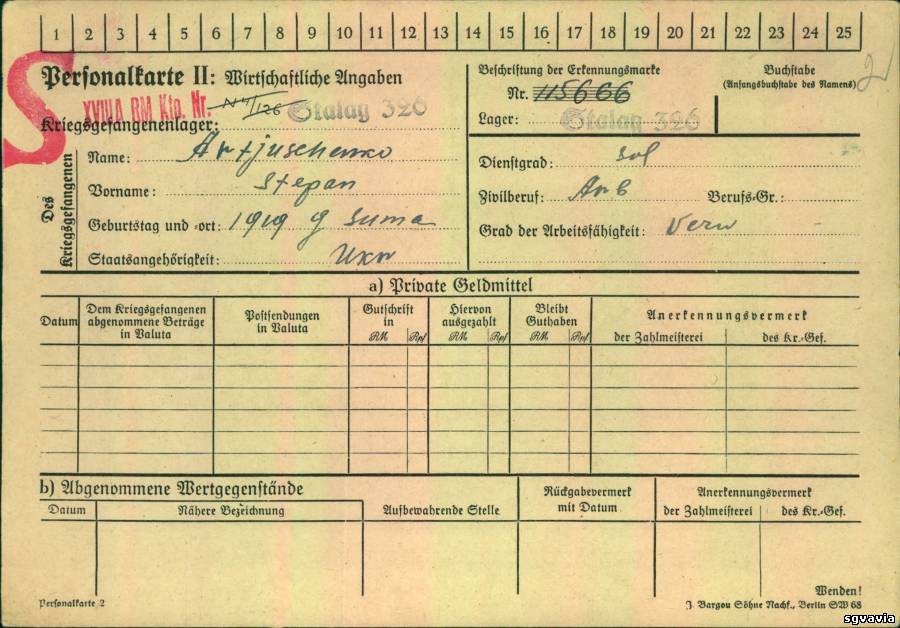 1 2 3 4 5 6 7 8 9 10 11 12 13 14 15 16 17 18 19 20 21 22 23 24 25
Personalkarte II: Wirtschaftliche Angaben
XVIIA BM Ktp. Nr.
126 Stalag 326
Kriegsgefangenenlager:
Des Kriegsgefangenen
Name: Artjuschenko
Vorname: Stepan
Geburtstag und -ort: 1919 g Suma
Staatsangehörigkeit: Ukr
Beschriftung der Erkennungsmarke
Nr. 115666
Lager: Stalag 326
Buchstabe
(Anfangsbuchstabe des Namens)
2
Dienstgrad: Sol
Zivilberuf: Arb Berufs-Gr.:
Grad der Arbeitsfähigkeit:
a) Private Geldmittel
Datum
Dem Kriegsgefangenen abgenommene Beträge in Valuta
Postsendungen in Valuta
Gutschrift in
RM Rpf
Hiervon ausgezahlt
RM Rpf
Bleibt Guthaben
RM Rpf
Anerkennungsvermerk
der Zahlmeisterei des Kr.-Gef.
b) Abgenommene Wertgegenstände
Datum
Nähere Bezeichnung
Aufbewahrende Stelle
Rückgabevermerk mit Datum
Anerkennungsvermerk
der Zahlmeisterei des Kr.-Gef.
Wenden!
Personalkarte 2
J. Bargou Söhne Nachf., Berlin SW 68
sgvavia